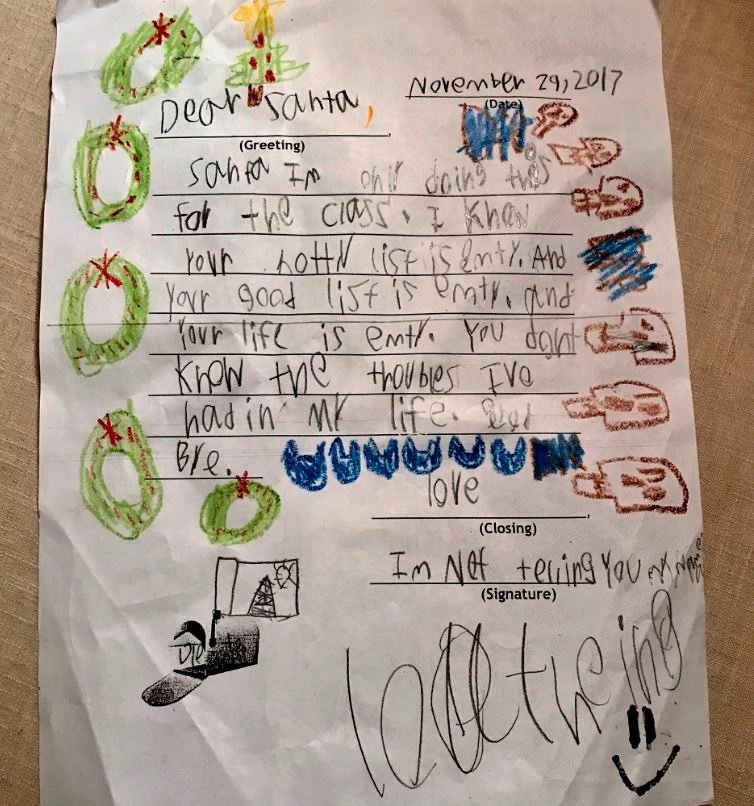 November 29, 2017
(Date)
Dear Santa,
(Greeting)
Santa Im only doing this
for the class. I know
Your nottY list is Emty. And
Your good list is emty. and
Your life is emty. You dont
Know the thoubles Ive
had in MY life. Good
Bye.
love
(Closing)
Im Not telling You my Name
(Signature)